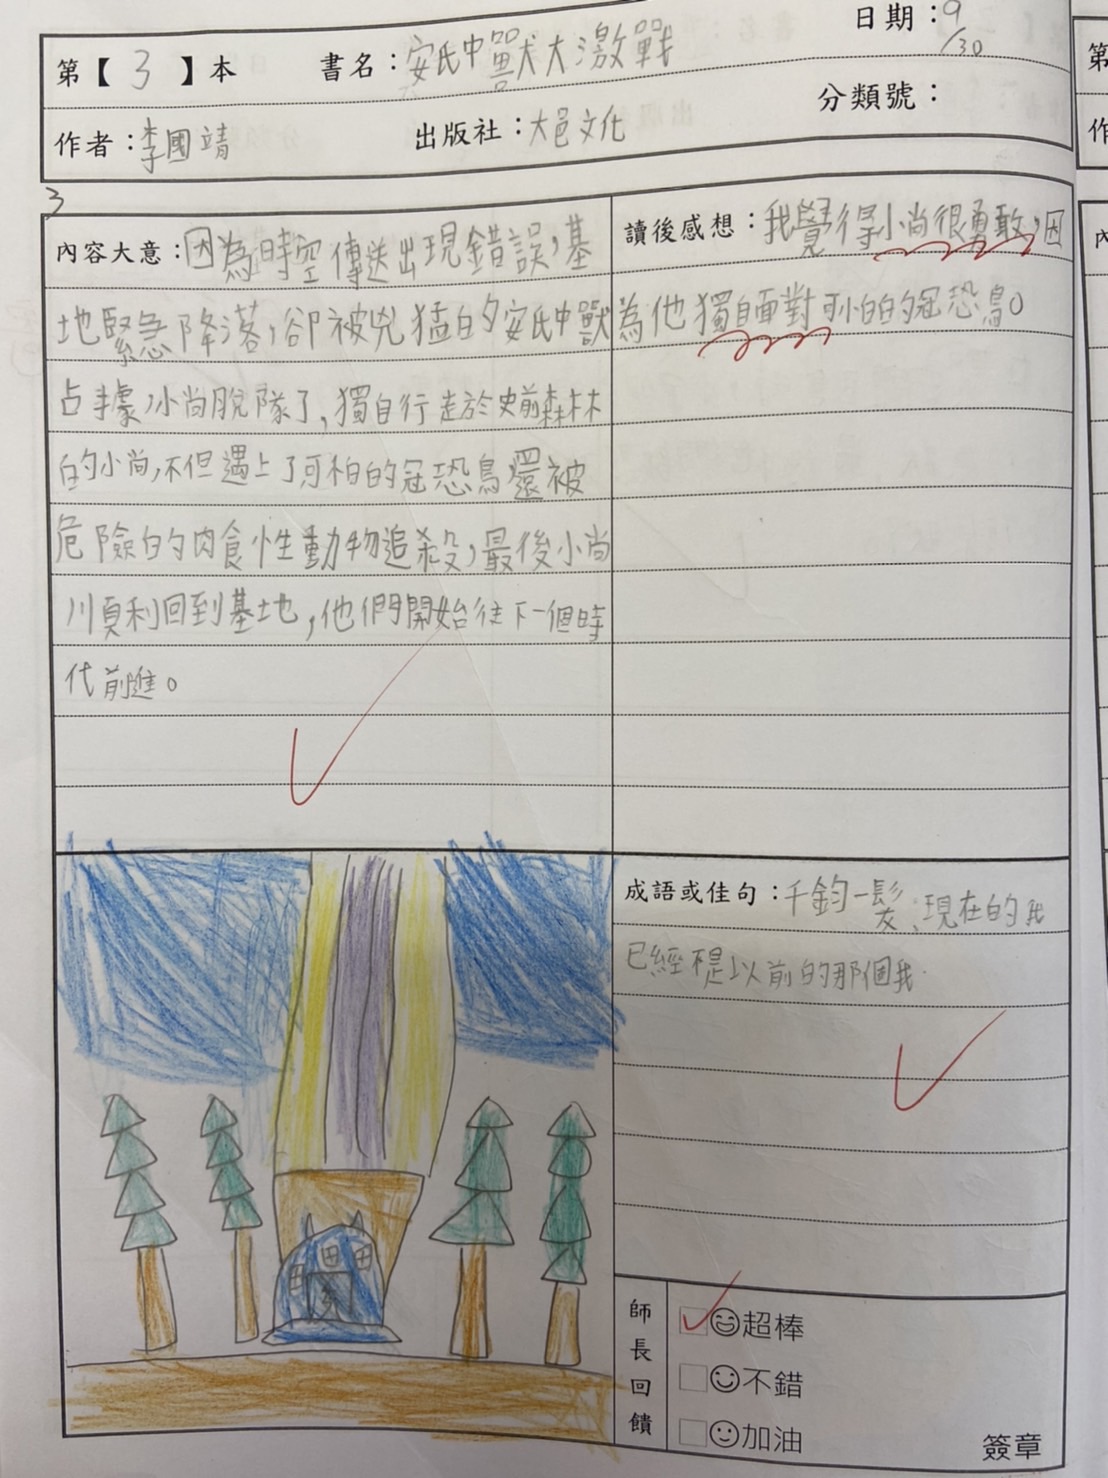 日期：9/30
第【 3 】本 書名：安氏中獸大激戰
分類號：
作者：李國靖 出版社：大邑文化
3
內容大意：因為時空傳送出現錯誤，基
地緊急降落，卻被兇猛的安氏中獸
占據，小尚脫隊了，獨自行走於史前森林
的小尚，不但遇上了可怕的冠恐鳥還被
危險的肉食性動物追殺，最後小尚
順利回到基地，他們開始往下一個時
代前進。
讀後感想：我覺得小尚很勇敢，因
為他獨自面對可怕的冠恐鳥。
成語或佳句：千鈞一髮；現在的我
已經不是以前的那個我.
師長回饋
超棒
不錯
加油
簽章
第
作
內